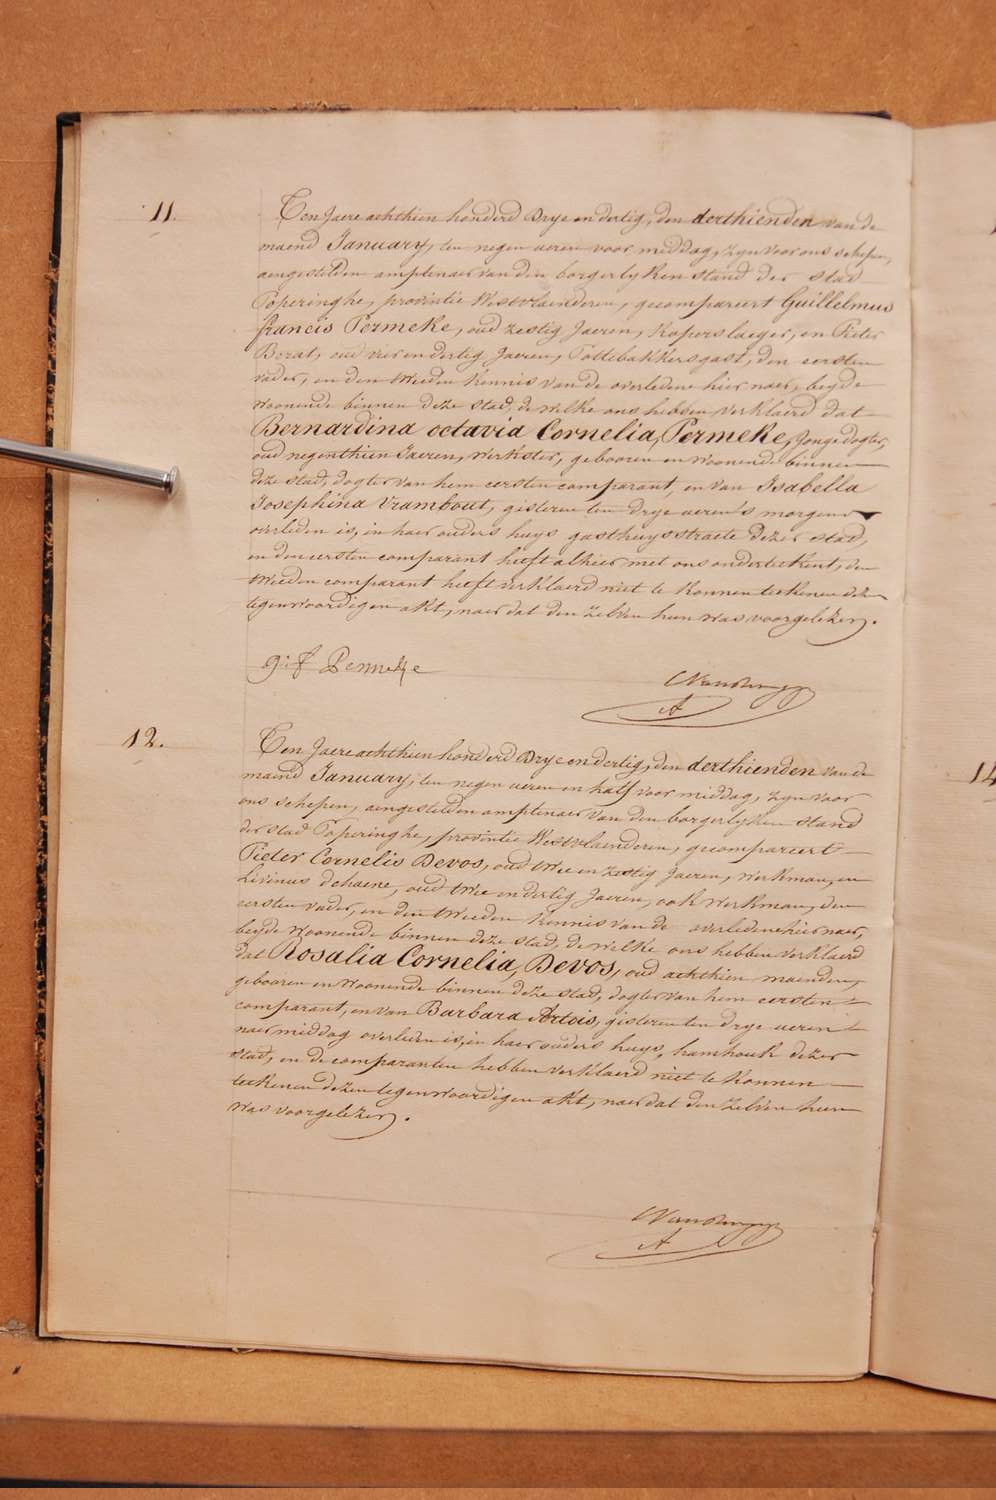 11.
Ten Jaere achthien honderd Drye en dertig, den derthienden van de
maend January, ten negen ueren voor middag, zyn voor ons schepen,
aengestelden amptenaer van den borgerlyken stand der stad
Poperinghe, provintie Westvlaenderen, gecompareert Guillelmus
francis Permeke, oud zestig Jaeren, Koperslaeger, en Pieter
oud vier en dertig Jaeren, Pottebakkersgast, den eersten
vader, en den tweeden Kennis van de overledene hier naer, beyde
woonende binnen deze stad, de welke ons hebben verklaerd dat
Bernardina octavia Cornelia, Permeke, Jonge dogter,
oud negenthien Jaeren, werkster, gebooren en woonende binnen
deze stad, dogter van hem eersten comparant, en van Isabella
Josephina Vrambout, gisteren ten drye ueren 's morgens
overleden is, in haer ouders huys gasthuysstraete dezer stad,
en den eersten comparant heeft alhier met ons onderteekent, den
tweeden comparant heeft verklaerd niet te konnen teekenen dezen
tegenwoordigen akt, naer dat den zelven hun was voorgelezen.
g: f Permeke
12.
Ten Jaere achthien honderd Drye en dertig, den derthienden van de
maend January, ten negen ueren en half voor middag, zyn voor
ons schepen, aengestelden amptenaer van den borgerlyken stand
der stad Poperinghe, provintie Westvlaenderen, gecompareert
Pieter Cornelis Devos, oud twee en zestig Jaeren, werkman, en
Livinus dehaene, oud twee en dertig Jaeren, ook werkman, den
eersten vader, en den tweeden Kennis van de overledene hier naer,
beyde woonende binnen deze stad, de welke ons hebben verklaerd
dat Rosalia Cornelia, Devos, oud achthien maenden,
gebooren en woonende binnen deze stad, dogter van hem eersten
comparant, en van Barbara Artois, gisteren ten drye ueren
naer middag overleden is, in haer ouders huys, hamhouk dezer
stad, en de comparanten hebben verklaerd niet te konnen
teekenen dezen tegenwoordigen akt, naer dat den zelven hun
was voorgelezen.
14